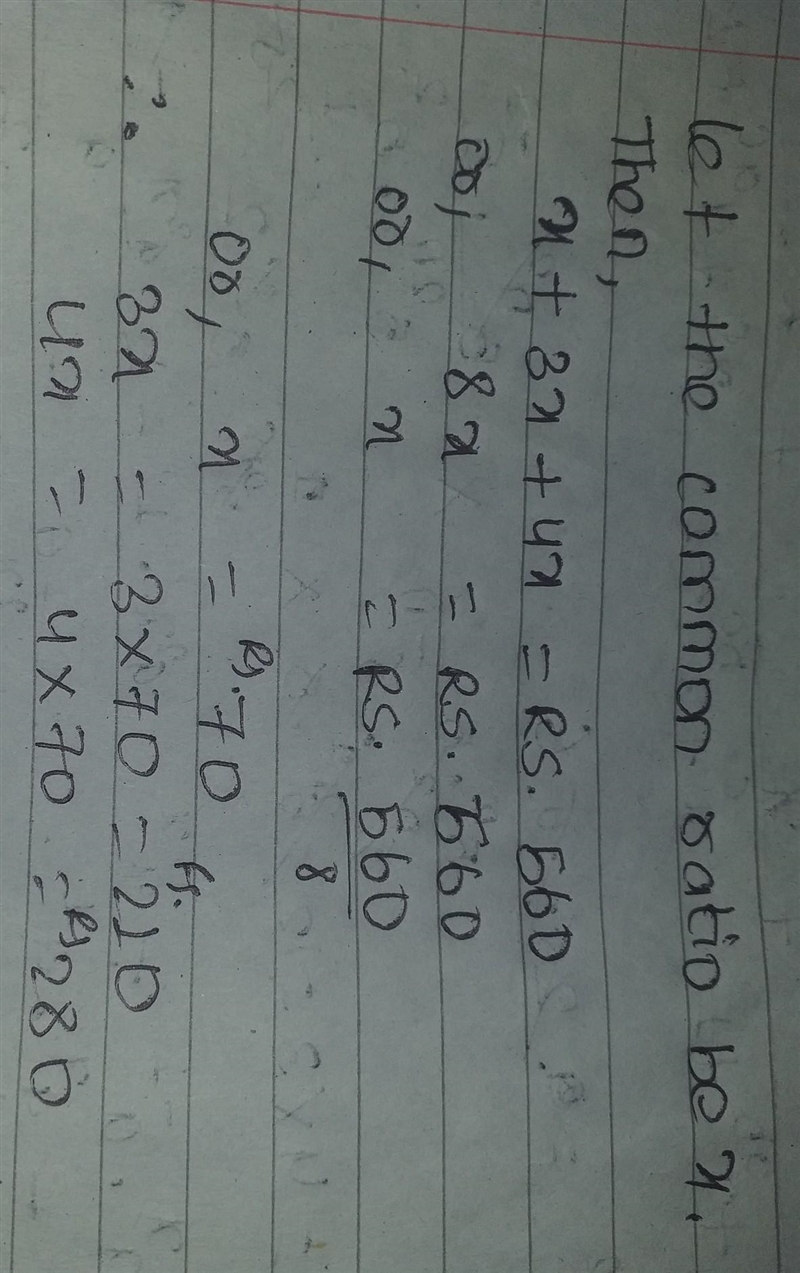 let the common ratio be x.
Then,
x + 3x + 4x = RS. 560
or, 8x = RS. 560
or, x = RS. 560/8
or, x = Rs. 70
∴ 3x = 3 × 70 = Rs. 210
4x = 4 × 70 = Rs 280